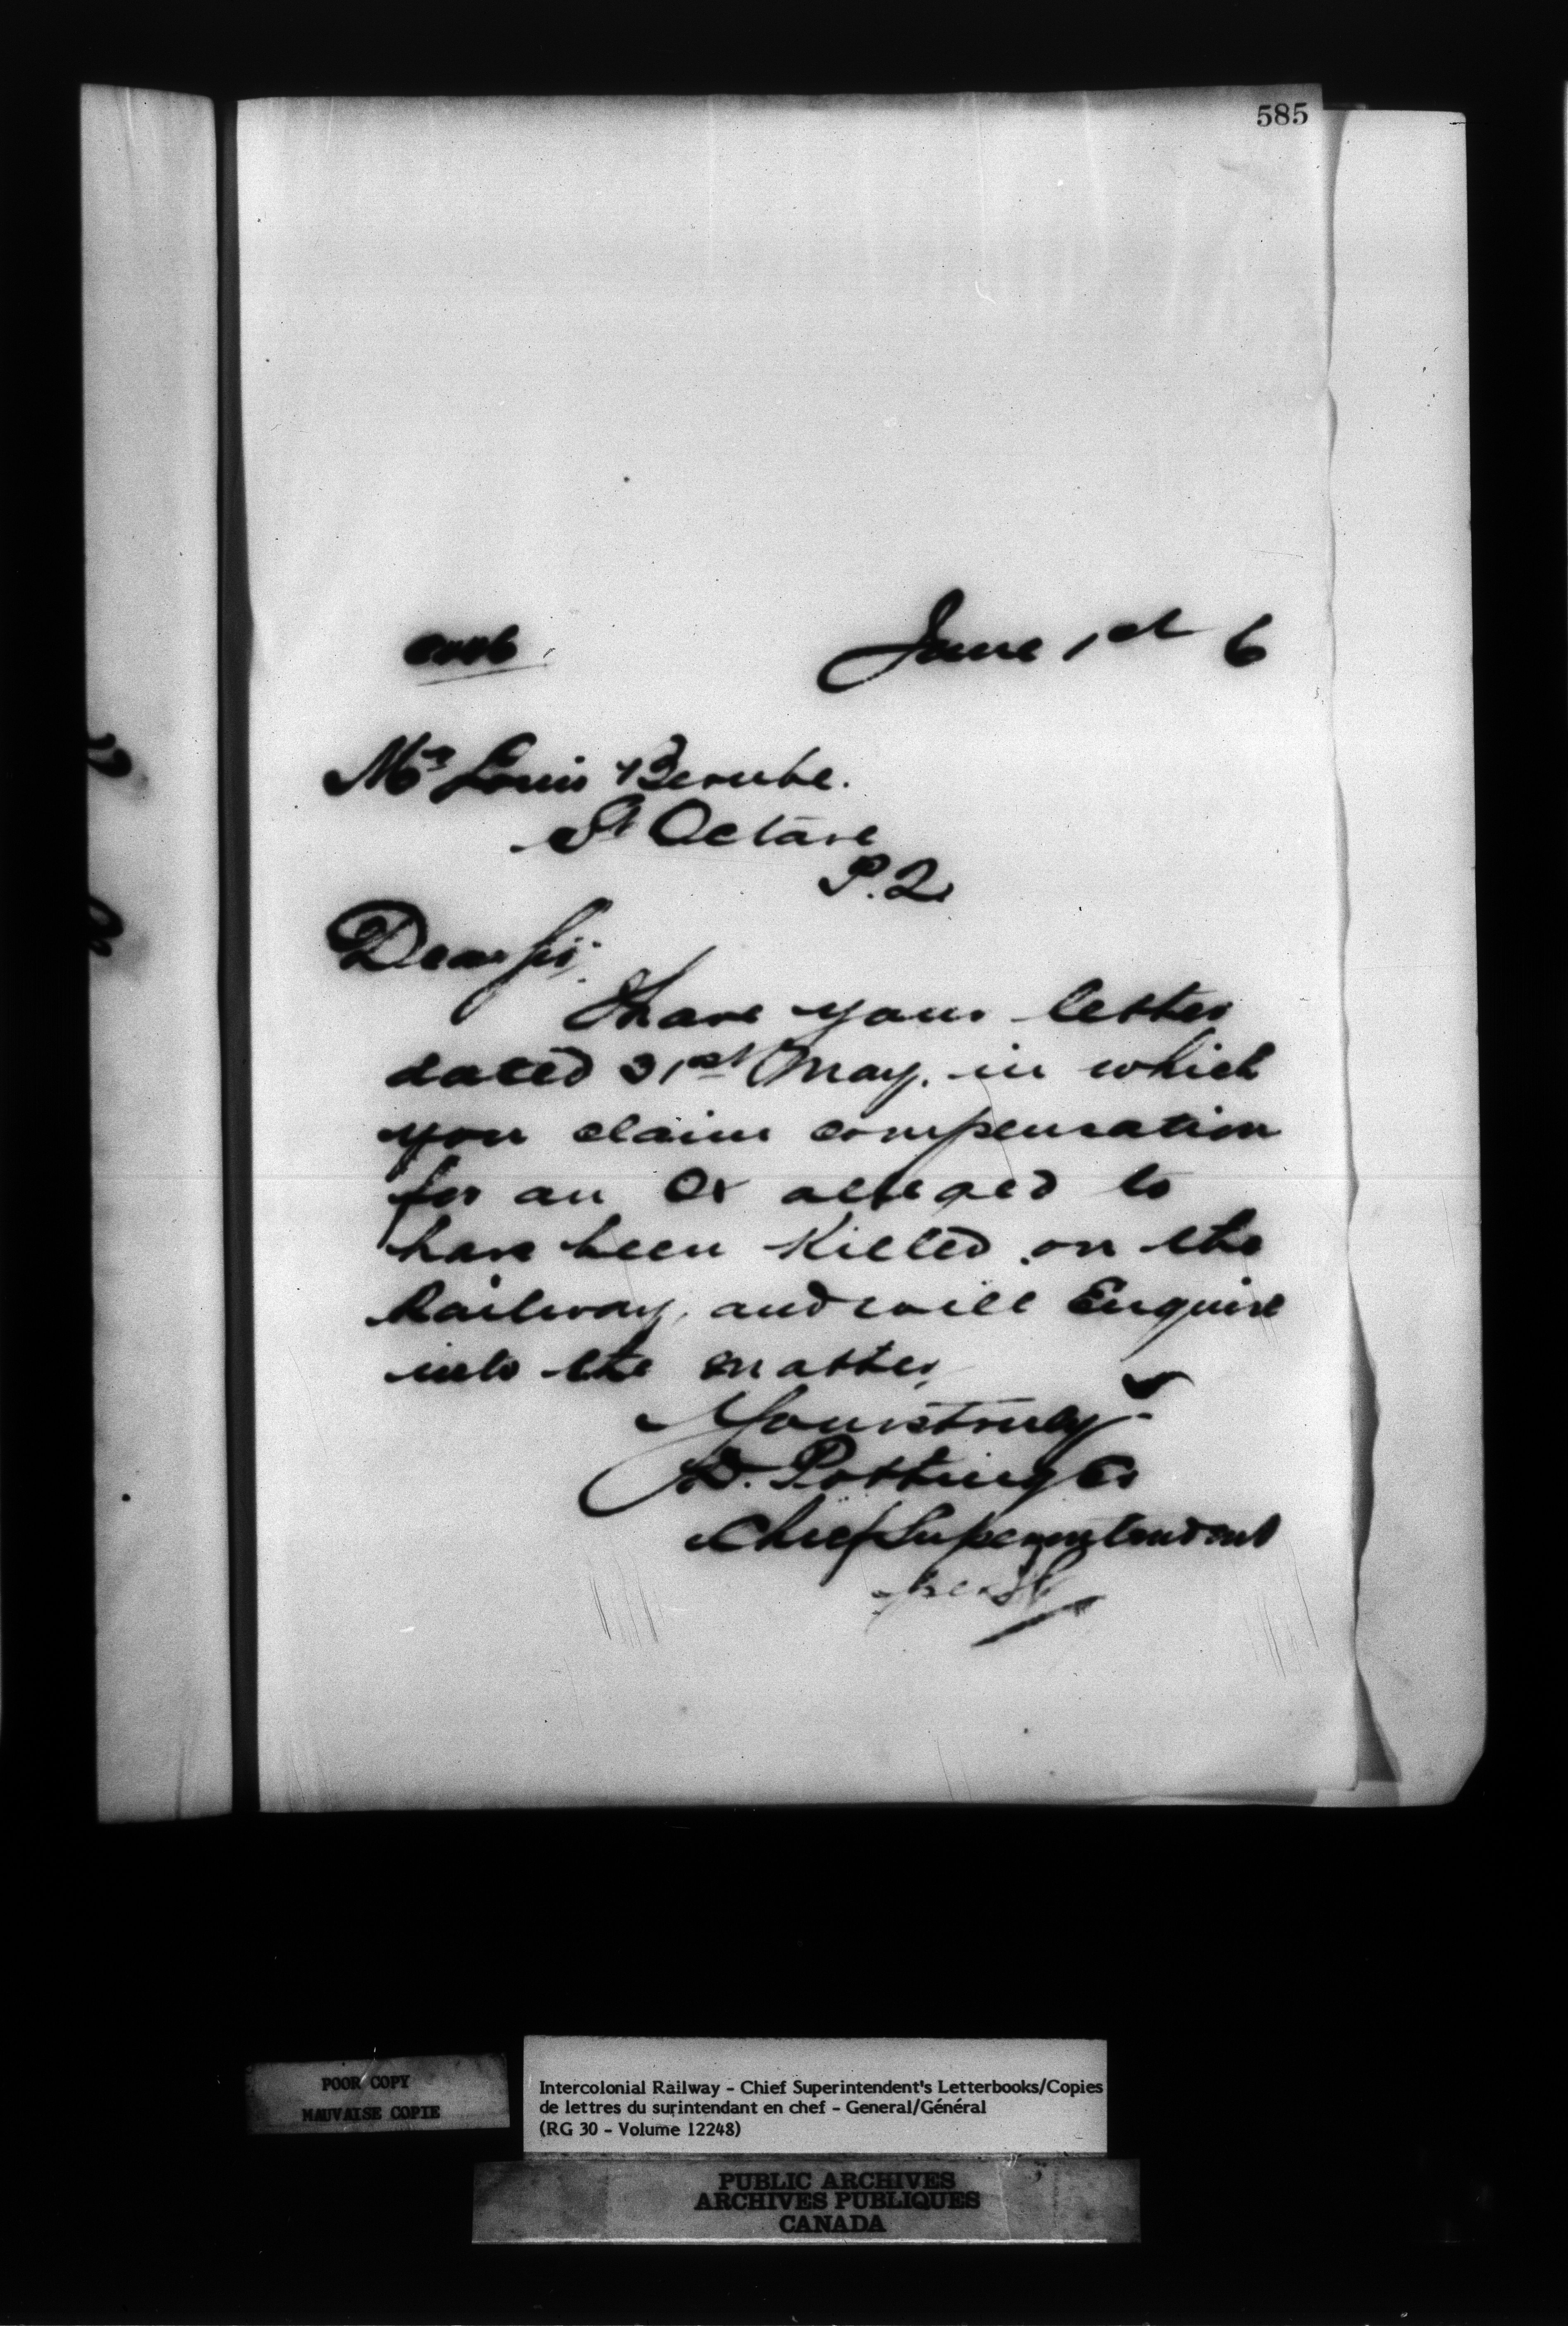 585
June 1st 6
Mr Louis Berube.
St Octave
P.Q.
Dear Sir,
I have your letter
dated 31st May. in which
you claim compensation
for an Ox alleged to
have been Killed on the
Railway, and will Enquire
into the matter,
Yours truly
D. Pottinger
Chief Superintendent
POOR COPY
MAUVAISE COPIE
Intercolonial Railway - Chief Superintendent's Letterbooks/Copies
de lettres du surintendant en chef - General/Général
(RG 30 - Volume 12248)
PUBLIC ARCHIVES
ARCHIVES PUBLIQUES
CANADA